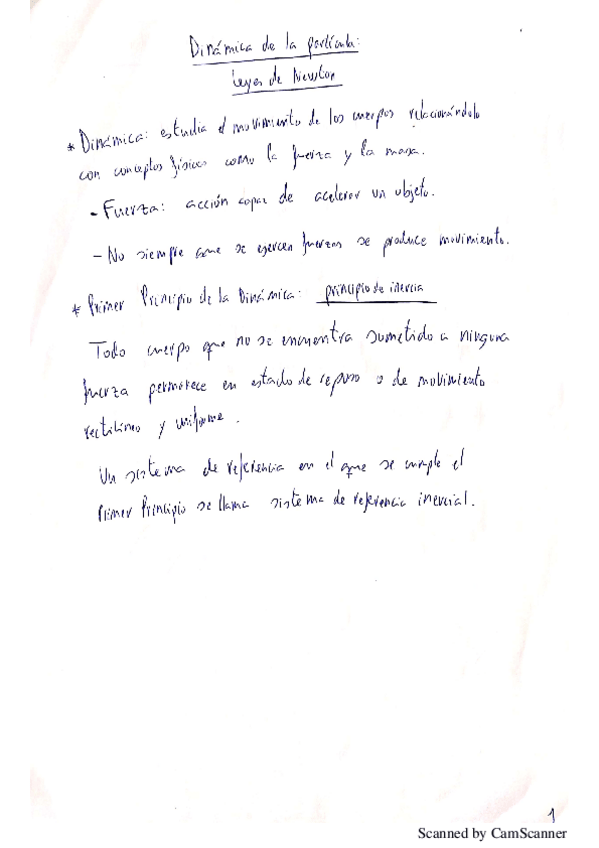 Dinámica de la partícula:
Leyes de Newton
* Dinámica: estudia el movimiento de los cuerpos relacionándolo
con conceptos físicos como la fuerza y la masa.
- Fuerza: acción capaz de acelerar un objeto.
- No siempre que se ejercen fuerzas se produce movimiento.
* Primer Principio de la Dinámica: principio de inercia
Todo cuerpo que no se encuentra sometido a ninguna
fuerza permanece en estado de reposo o de movimiento
rectilíneo y uniforme.
Un sistema de referencia en el que se cumple el
Primer Principio se llama sistema de referencia inercial.
1
Scanned by CamScanner